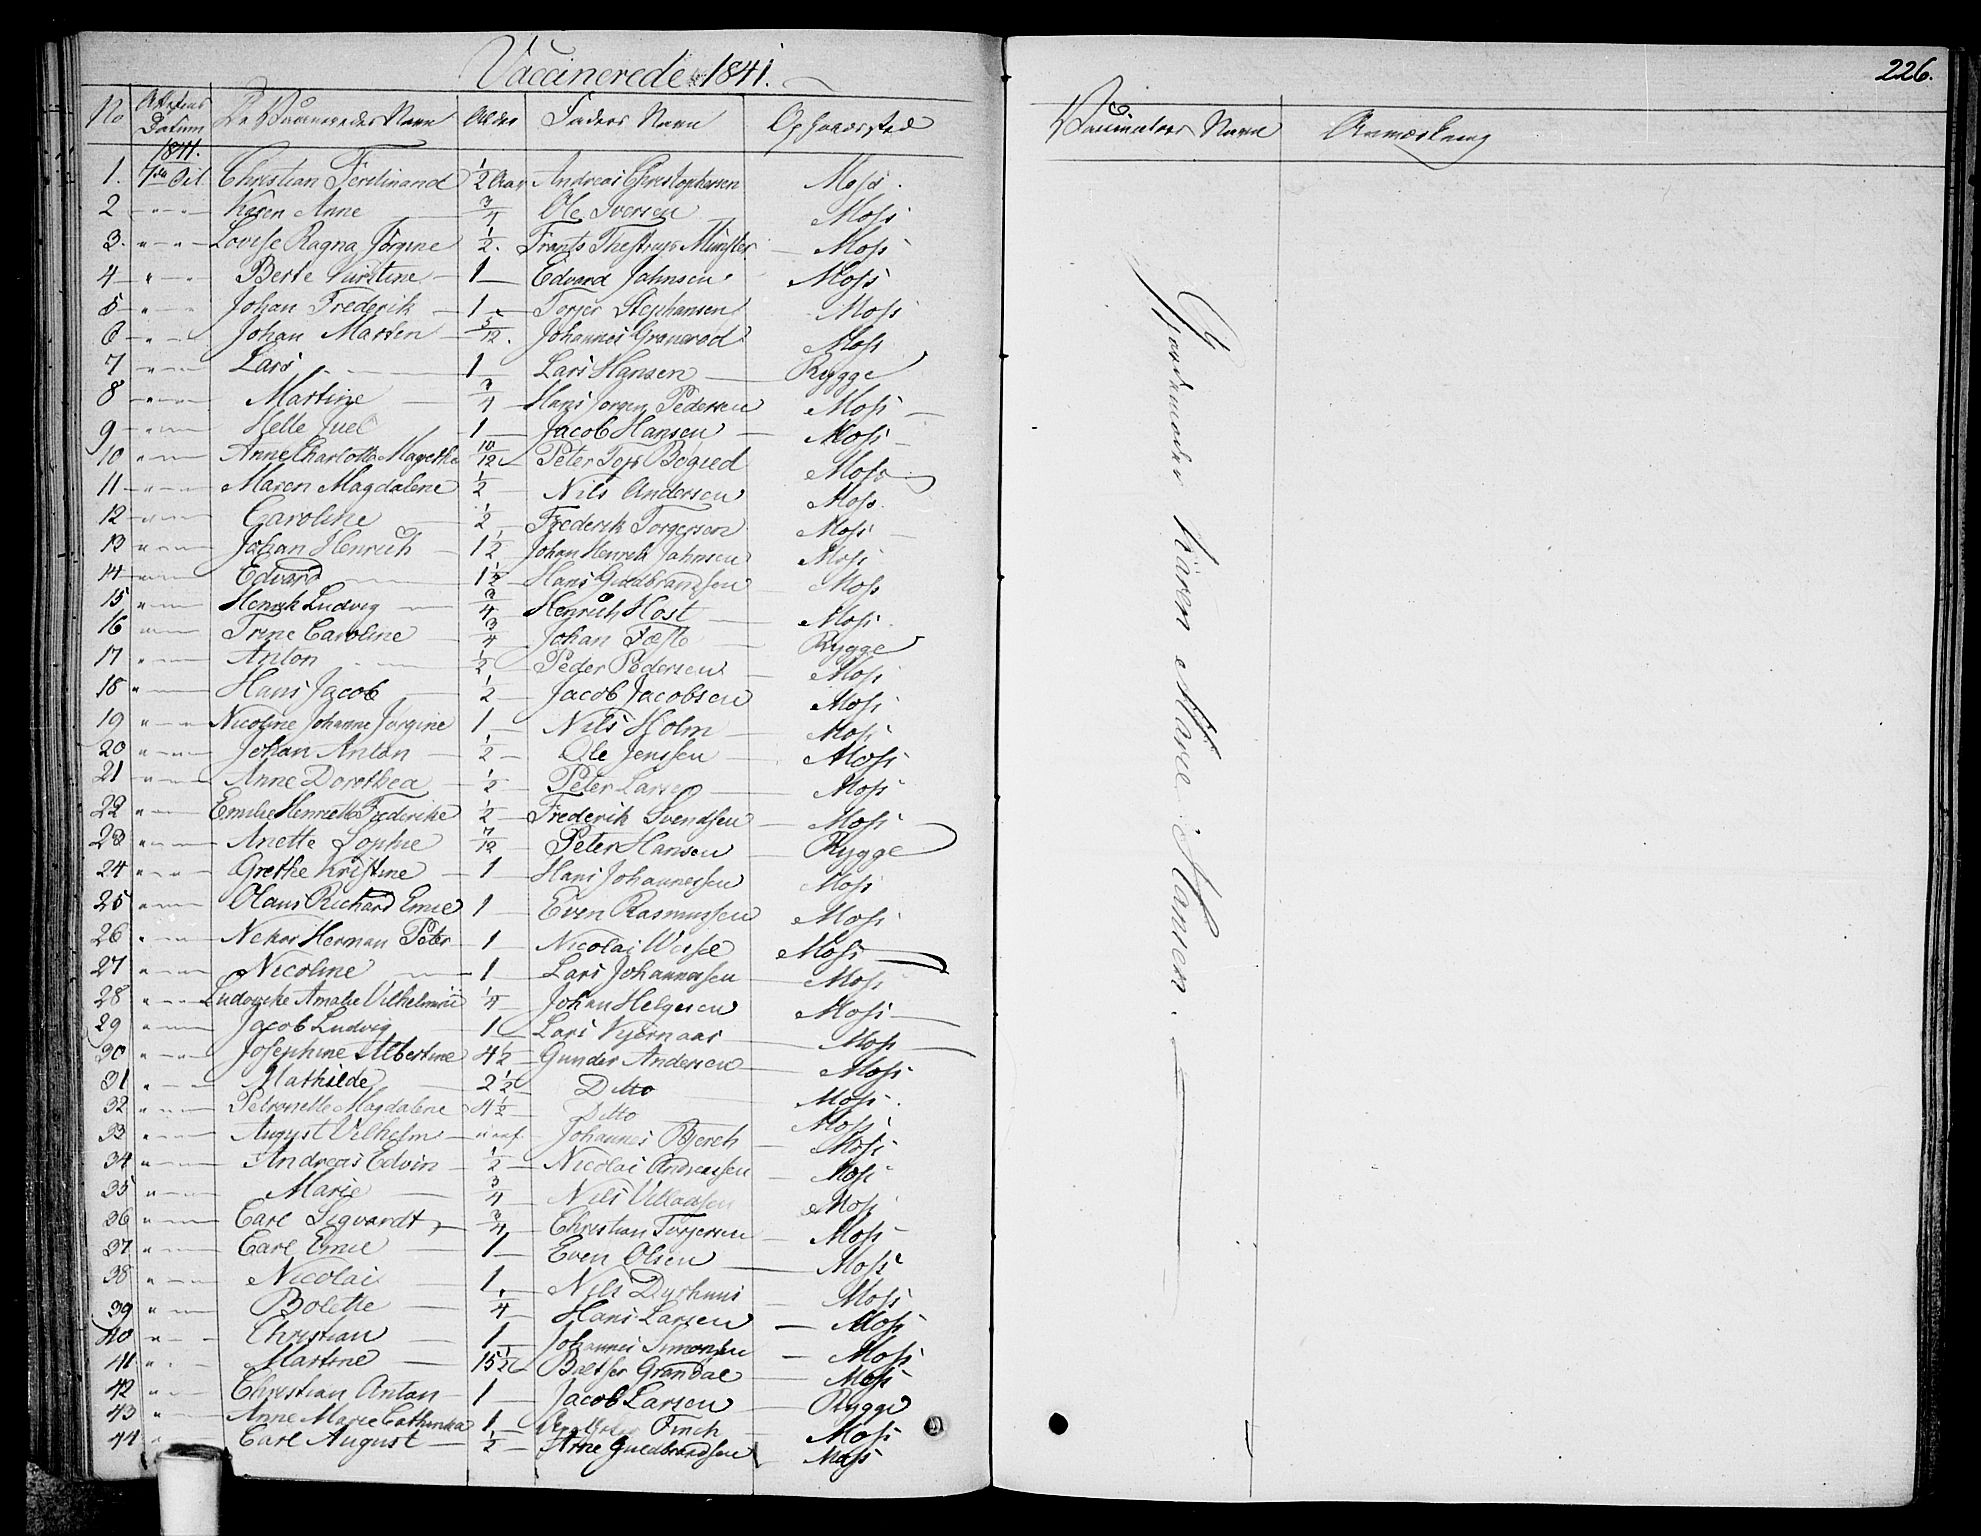 Vaccinerede 1841.
226.
No Attestens Datum De Vaccineredes Navn Alder Faders Navn Opholdssted Vaccinateurs Navn Anmærkning
1841.
1. 7de Oct. Christian Ferdinand 1/2 Aar Andreas Christophersen Moss.
2 " Karen Anne 3/4 Ole Iversen Moss
3. " Lovise Ragna Jørgine 1/2. Frants Thestrup Münster Moss
4 " Berte Kirstine 1 Edvard Johnsen Moss
5 " Johan Frederik 1 Torger Stephansen Moss
6 " Johan Marten 5/12. Johannes Grønerød Moss
7 " Lars 1 Lars Hansen Rygge
8 " Martine 3/4 Hans Jørgen Pedersen Moss
9 " Helle Juel 1 Jacob Hansen Moss
10 " Anne Charlotta Magrethe 10/12 Peter Bogsed Moss
11 " Maren Magdalene 1/2 Nils Andersen Moss
12 " Caroline 1/2 Frederik Torgersen Moss
13 " Johan Henrich 1 1/2 Johan Henrik Johnsen Moss
14 " Edvard 1 1/2 Hans Guldbrandsen Moss
15 " Henrik Ludvig 3/4 Henrich Høst Moss
16 " Trine Caroline 3/4 Johan Fæste Rygge
17 " Anton 1/2 Peder Pedersen Moss
18 " Hans Jacob 1/2 Jacob Jacobsen Moss
19 " Nicoline Johanne Jørgine 1 Nils Holm Moss
20 " Johan Anton 1/2 Ole Jenssen Moss
21 " Anne Dorethea 1/2 Peter Larsen Moss
22 " Emilie Henriette Frederikke 1/2 Frederik Svendsen Moss
23 " Anette Sophie 7/12 Peter Hansen Rygge
24 " Grethe Kristine 1 Hans Johannessen Moss
25 " Olaus Richard Emil 1 Even Rasmussen Moss
26 " Herman Peter 1 Nicolai Moss
27 " Nicoline 1 Lars Johannessen Moss
28 " Ludovike Amalie Vilhelmine 1/4 Johan Helgesen Moss
29 " Jacob Ludvig 1 Lars Kjernaas Moss
30 " Josephine Albertine 4 1/2 Gunder Andersen Moss
31 " Mathilde 2 1/2 Ditto Moss
32 " Petronelle Magdalene 4 1/2 Ditto Moss
33 " August Vilhelm Johannes Bjerch Moss
34 " Andreas Edvin 1/2 Nicolai Andreassen Moss
35 " Marie 3/4 Nils Villadsen Moss
36 " Carl Sigvardt 3/4 Christian Torjersen Moss
37 " Carl Emil 1 Even Olsen Moss
38 " Nicolai 1 Nils Dyrhuus Moss
39 " Bolette 1/4 Hans Larsen Moss
40 " Christian 1 Johannes Simonsen Moss
41 " Martine 15 1/2 Baltser Grandal Moss
42 " Christian Anton 1 Jacob Larsen Rygge
43 " Anne Marie Cathinka 1 Finch Moss
44 " Carl August 1/2 Arne Guldbrandsen Moss
Gjordemoder Karen Marie Hansen.